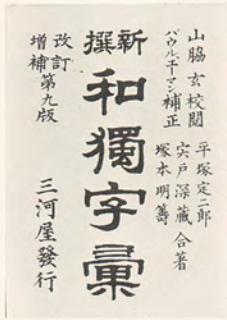 山脇玄校閲
パウル、エーマン補正
平塚定二郎
宍戸深藏 合著
塚本明籌
新撰
和獨字彙
改訂
增補 第九版
三河屋發行